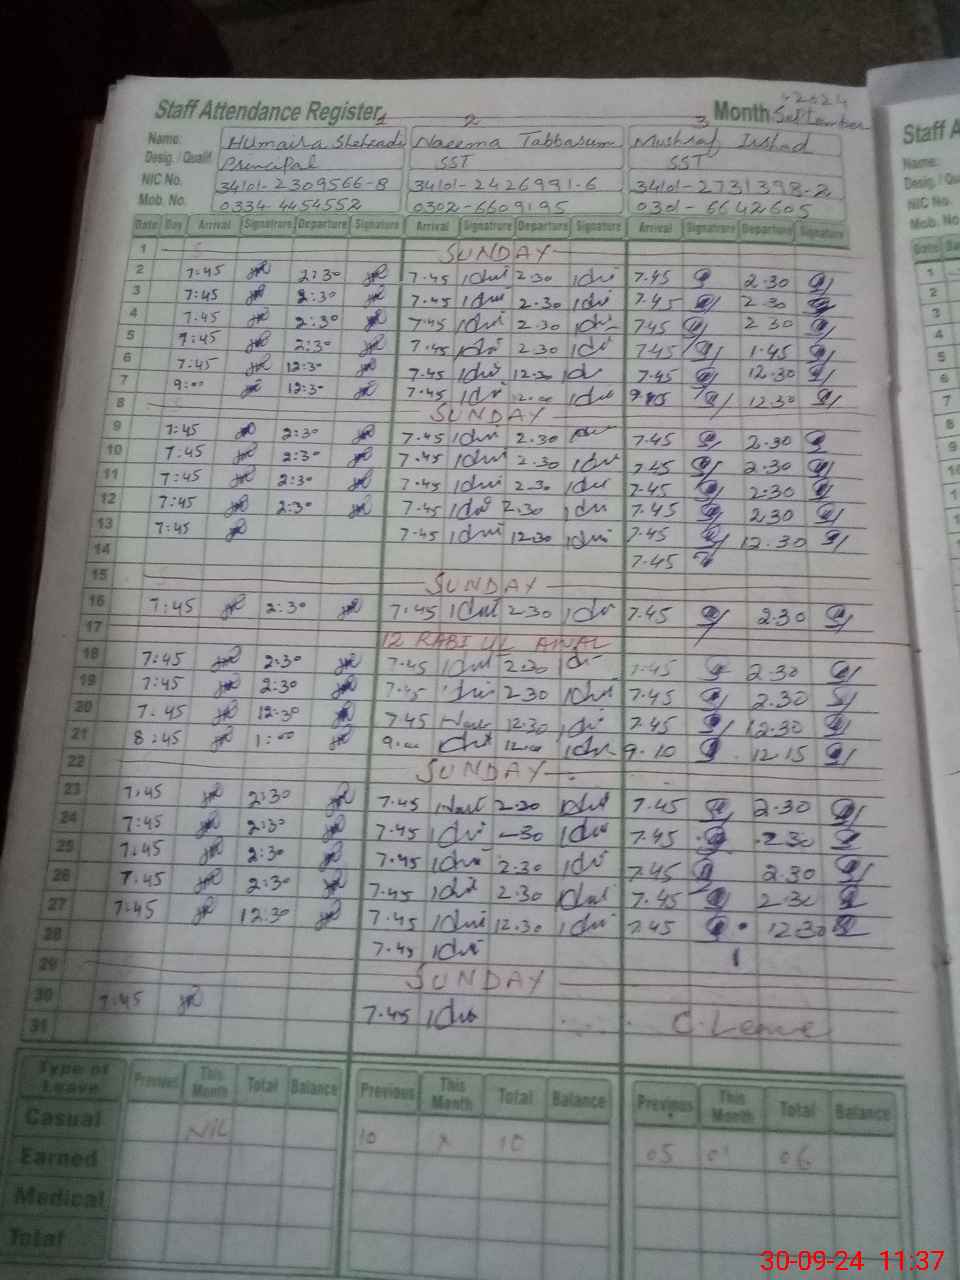 2024
Staff Attendance Register 1 2 3 Month September
Name: Humaira Shehzadi Naeema Tabbasum Mushraf Irshad
Desig. / Qualif Principal SST SST
NIC No. 34101-2309566-8 34101-2426991-6 34101-2731398-2
Mob. No. 0334-4454552 0302-6609195 0301-6642605
Date Day Arrival Signatrure Departure Signature Arrival Signatrure Departure Signature Arrival Signatrure Departure Signature
1 SUNDAY
2 7:45 2:30 7.45 2.30 7.45 2.30
3 7:45 2:30 7.45 2.30 7.45 2.30
4 7.45 2:30 7.45 2.30 7.45 2 30
5 7:45 2:30 7.45 2.30 7.45 1.45
6 7:45 12:30 7.45 12.30 7.45 12.30
7 9:00 12:30 7.45 12.00 12.30
8 SUNDAY
9 7:45 2:30 7.45 2.30 7.45 2.30
10 7:45 2:30 7.45 2.30 7.45 2.30
11 7:45 2:30 7.45 2.30 7.45 2:30
12 7:45 2:30 7.45 2.30 7.45 2.30
13 7:45 7.45 12.30 7.45 12.30
14 7.45
15 SUNDAY
16 7:45 2:30 7.45 2.30 7.45 2.30
17 12 RABI UL AWAL
18 7:45 2:30 7.45 2.30 7.45 2.30
19 7:45 2:30 7.45 2.30 7.45 2.30
20 7.45 12:30 7.45 12.30 7.45 12.30
21 8:45 1:00 9.00 12.00 9.10 12.15
22 SUNDAY
23 7:45 2:30 7.45 2.30 7.45 2.30
24 7:45 2:30 7.45 -30 7.45 2.30
25 7:45 2:30 7.45 2.30 7.45 2.30
26 7.45 2:30 7.45 2.30 7.45 2.30
27 7:45 12:30 7.45 12.30 7.45 12.30
28 7.45
29 SUNDAY
30 7:45 7.45 C. Leave
31
Type of Leave Previous This Month Total Balance Previous This Month Total Balance Previous This Month Total Balance
Casual Nil 10 x 10 05 01 06
Earned
Medical
Total
Staff A
Name:
Desig. /
NIC No.
Mob. No
Date
1
2
3
4
5
6
7
8
9
10
30-09-24 11:37